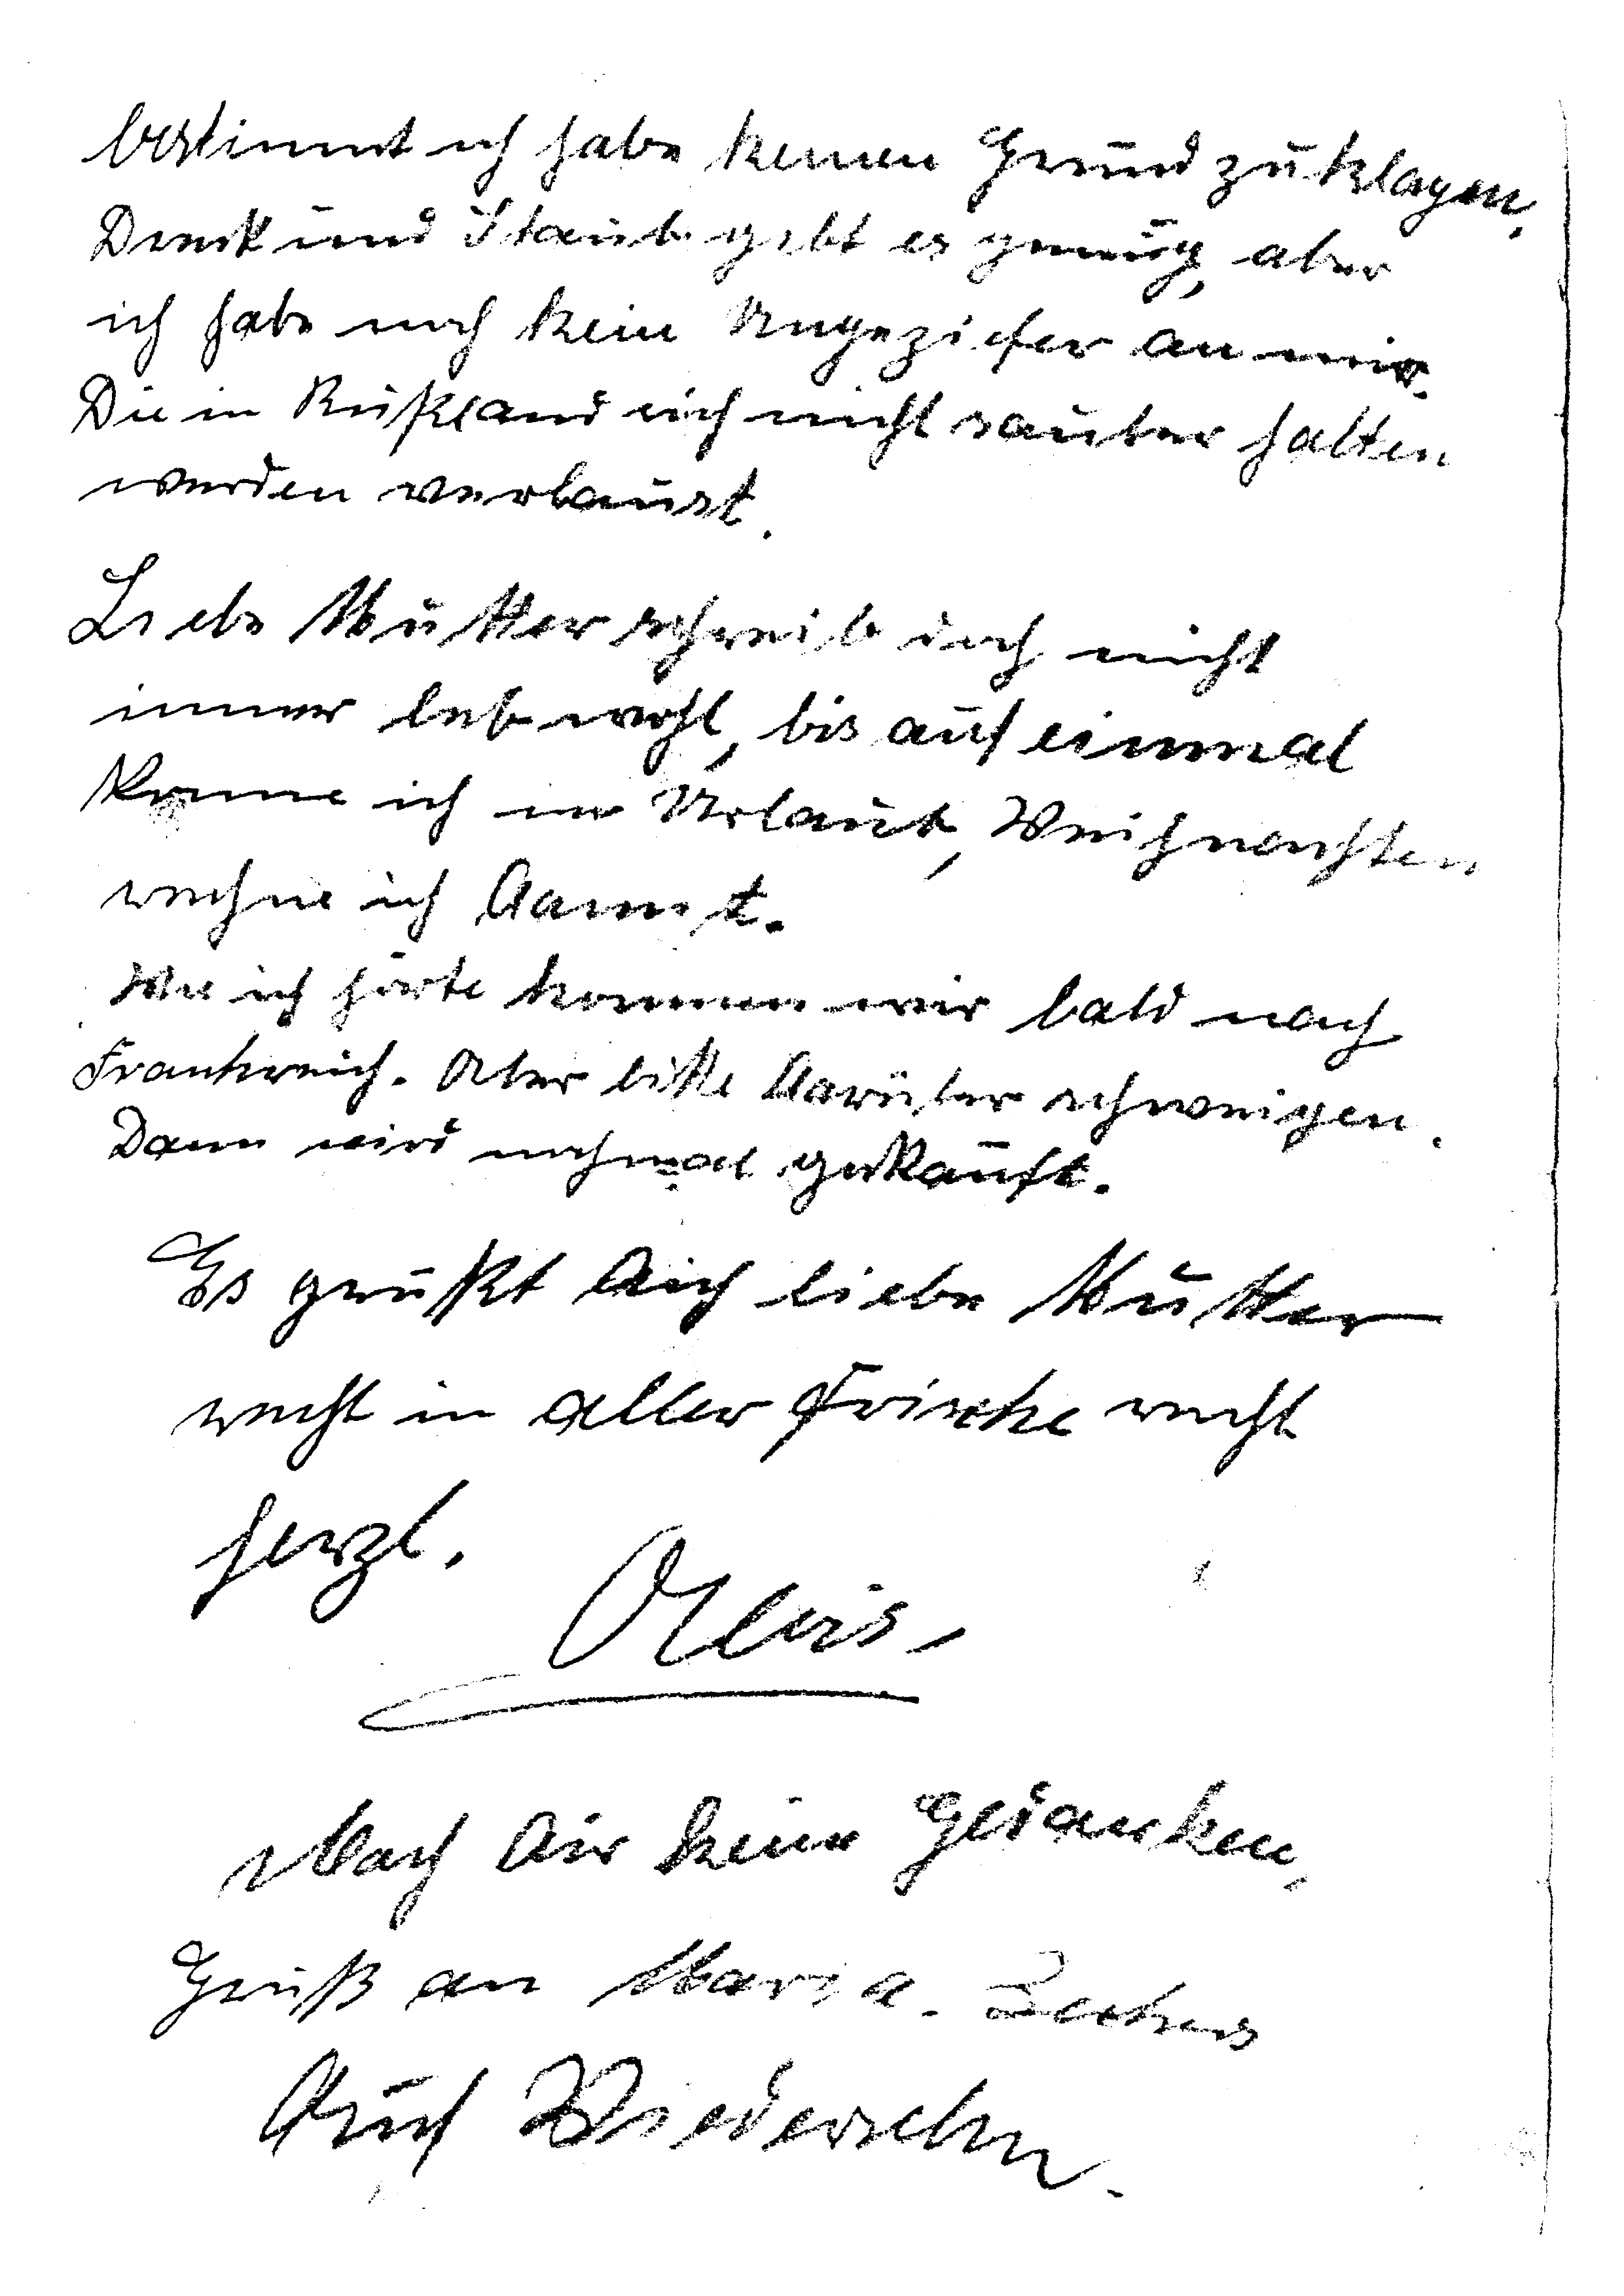 bestimmt ich habe keinen Grund zu klagen,
Dreck und Staub gibt es genug, aber
ich habe noch kein Ungeziefer an mir.
Die in Rußland sich nicht sauber halten
werden verlaust.
Liebe Mutter schreib doch nicht
immer lebwohl, bis auf einmal
komme ich in Urlaub, Weihnachten
rechne ich damit.
Wie ich hörte kommen wir bald nach
Frankreich. Aber bitte darüber schweigen.
Dann wird nochmal gekauft.
Es grüßt dich liebe Mutter
recht in aller Frische recht
herzl.
Alois.
Mach dir keine Gedanken,
Gruß an Maria.
Auf Wiedersehn.